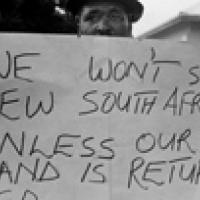 WE WON'T S
EW SOUTH AFRI
UNLESS OUR
AND IS RETU